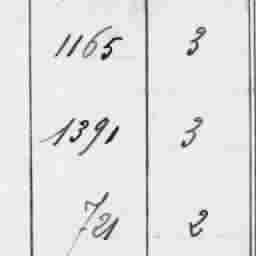 1165 3
1391 3
721 2